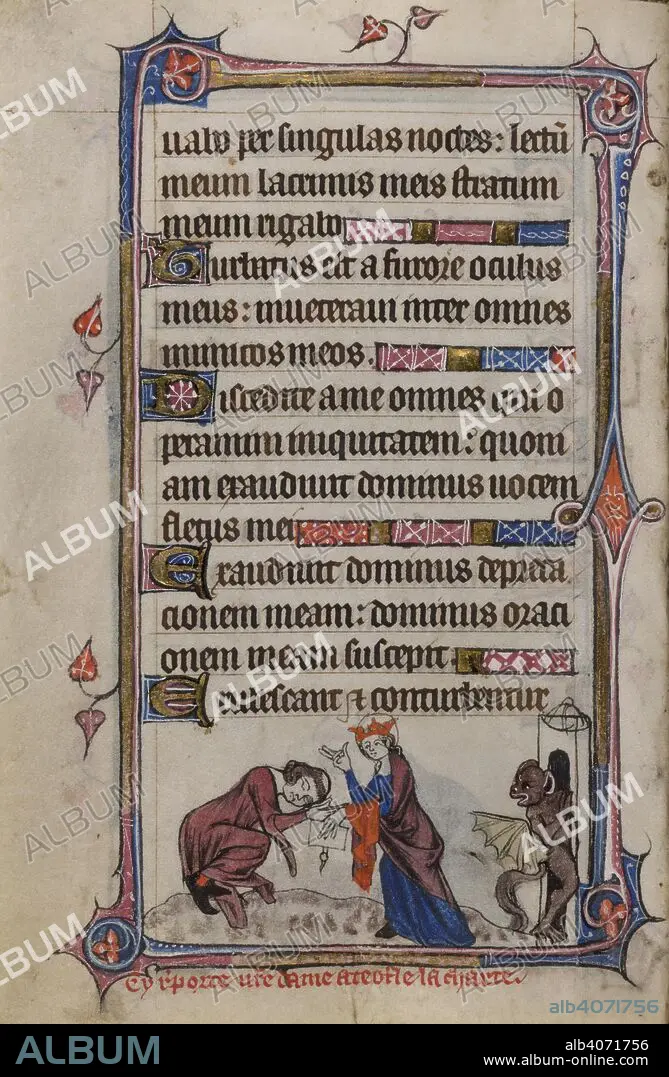 uabo per singulas noctes: lectū
meum lacrimis meis stratum
meum rigabo
Turbatus est a furore oculus
meus: inueteraui inter omnes
inimicos meos.
Discedite a me omnes qui o
peramini iniquitatem: quoni
am exaudiuit dominus uocem
fletus mei
Exaudiuit dominus depreca
cionem meam: dominus oraci
onem meam suscepit.
Erubescant & conturbentur
Cy r̄porte nr̄e dame a teofle la chartre.
ALBUM
alb4071756
ALBUM
alb4071756
www.album-online.com